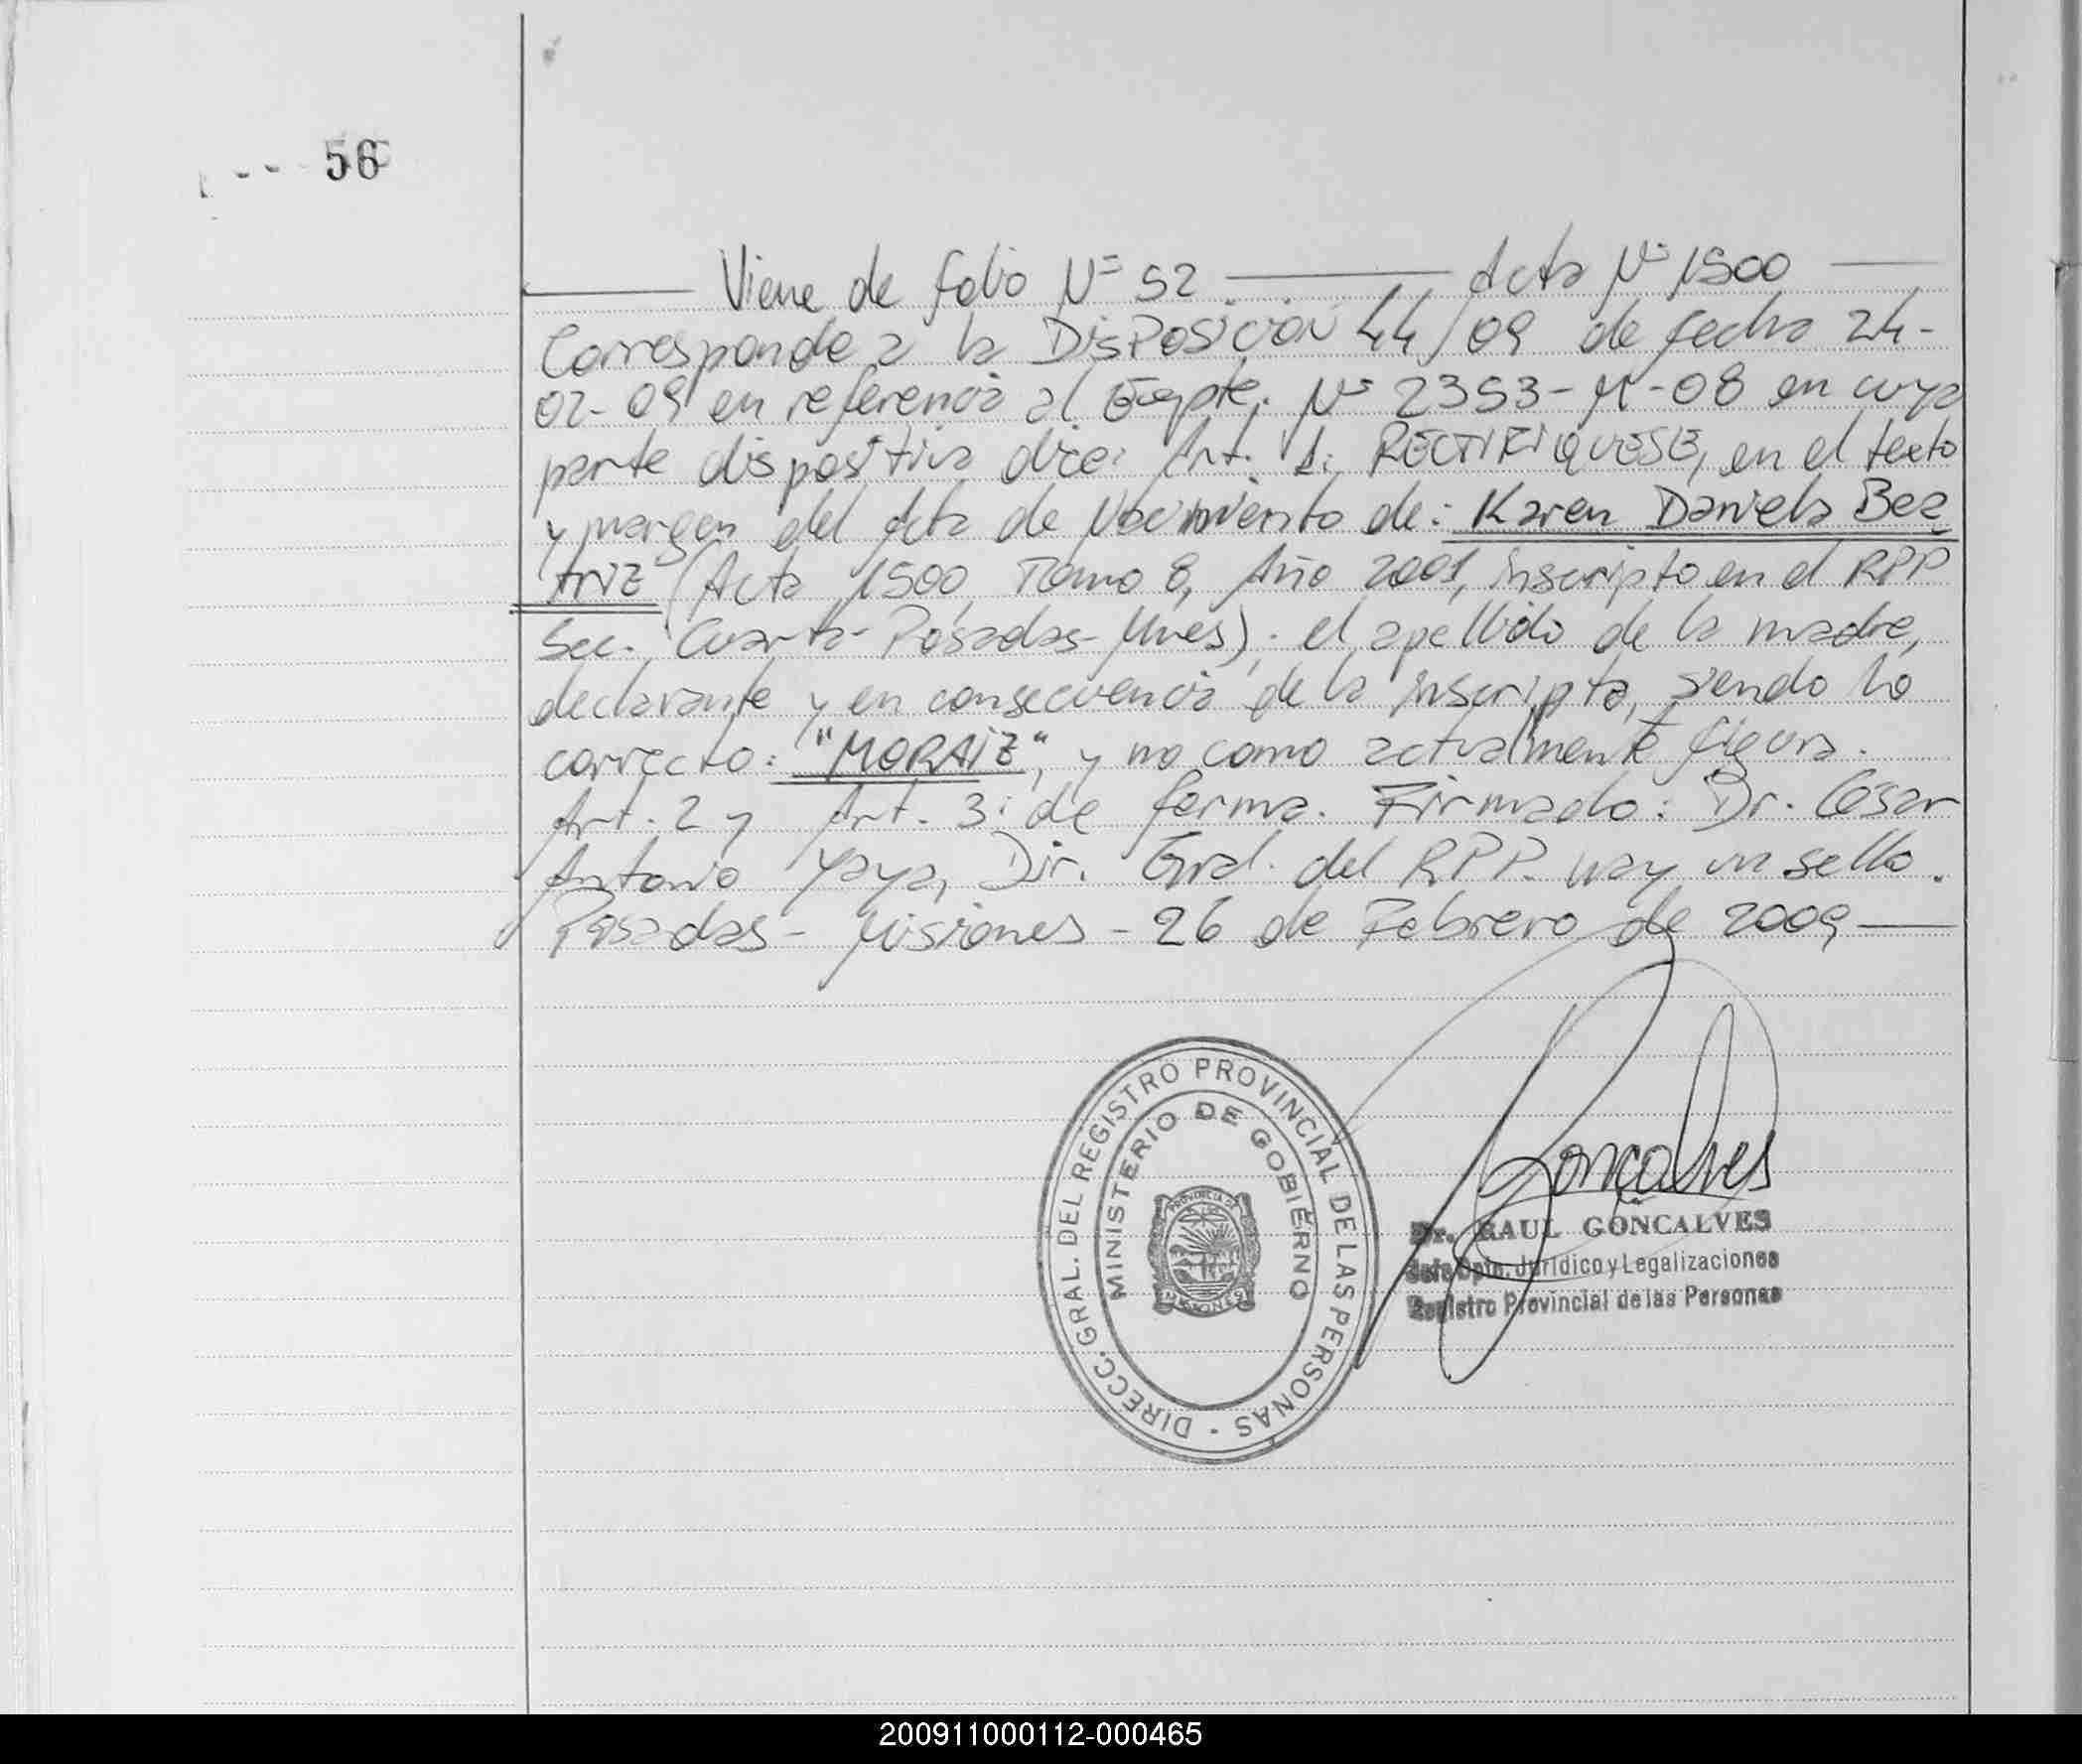 56
Viene de folio Nº 52 Acta Nº 1500
Corresponde a la DISPOSICION 44/09 de fecha 24-
02-09 en referencia al Expte. Nº 2353-M-08 en cuya
parte dispositiva dice: Art. 1: RECTIFIQUESE, en el texto
y margen del Acta de Nacimiento de: Karen Daniela Bea
triz (Acta 1500, Tomo 8, Año 2001, inscripto en el RPP
Sec. Cuarta-Posadas-Mnes); el apellido de la madre,
declarante y en consecuencia de la inscripta, siendo lo
correcto: "MORAIZ", y no como actualmente figura.
Art. 2 y Art. 3: de forma. Firmado: Dr. César
Antonio Yaya, Dir. Gral. del RPP. Hay un sello.
Posadas - Misiones - 26 de Febrero de 2009
DIRECC. GRAL. DEL REGISTRO PROVINCIAL DE LAS PERSONAS -
MINISTERIO DE GOBIERNO
PROVINCIA DE
MISIONES
Gonçalves
Dr. RAUL GONCALVES
Jefe Dpto. Jurídico y Legalizaciones
Registro Provincial de las Personas
200911000112-000465